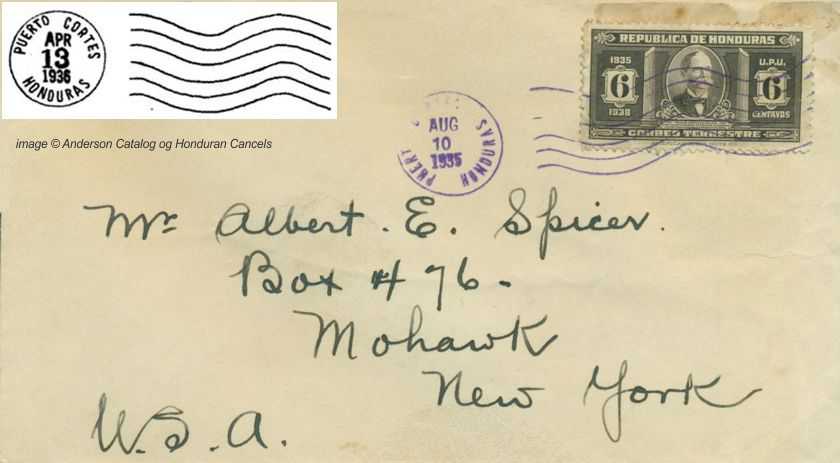 PUERTO CORTES
APR
13
1936
HONDURAS
image © Anderson Catalog og Honduran Cancels
AUG
10
1935
HONDURAS
REPUBLICA DE HONDURAS
1935 U.P.U.
6 6
1938 CENTAVOS
CORREO TERRESTRE
Mr. Albert. E. Spicer.
Box # 76-
Mohawk
New York
U.S.A.